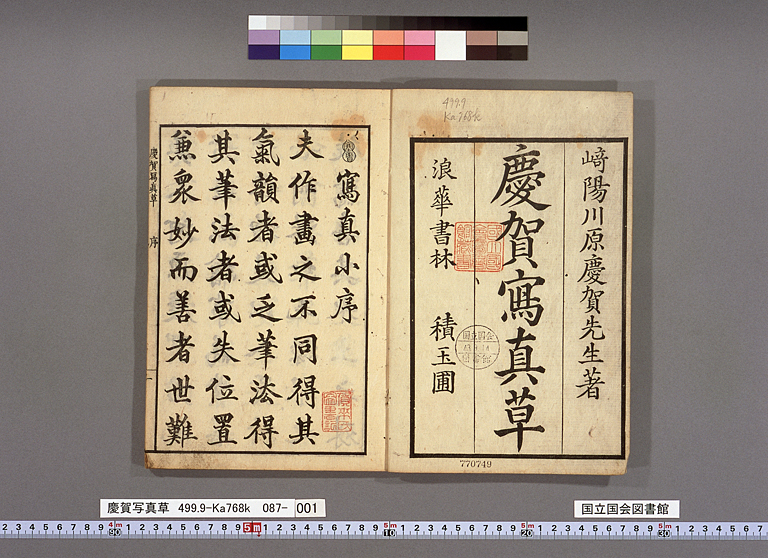 499.9
Ka768k
﨑陽川原慶賀先生著
慶賀寫真草
浪華書林 積玉圃
770749
寫真小序
夫作畫之不同得其
氣韻者或乏筆法得
其筆法者或失位置
兼衆妙而善者世難
慶賀寫真草 序
慶賀写真草 499.9-Ka768k 087- 001
国立国会図書館